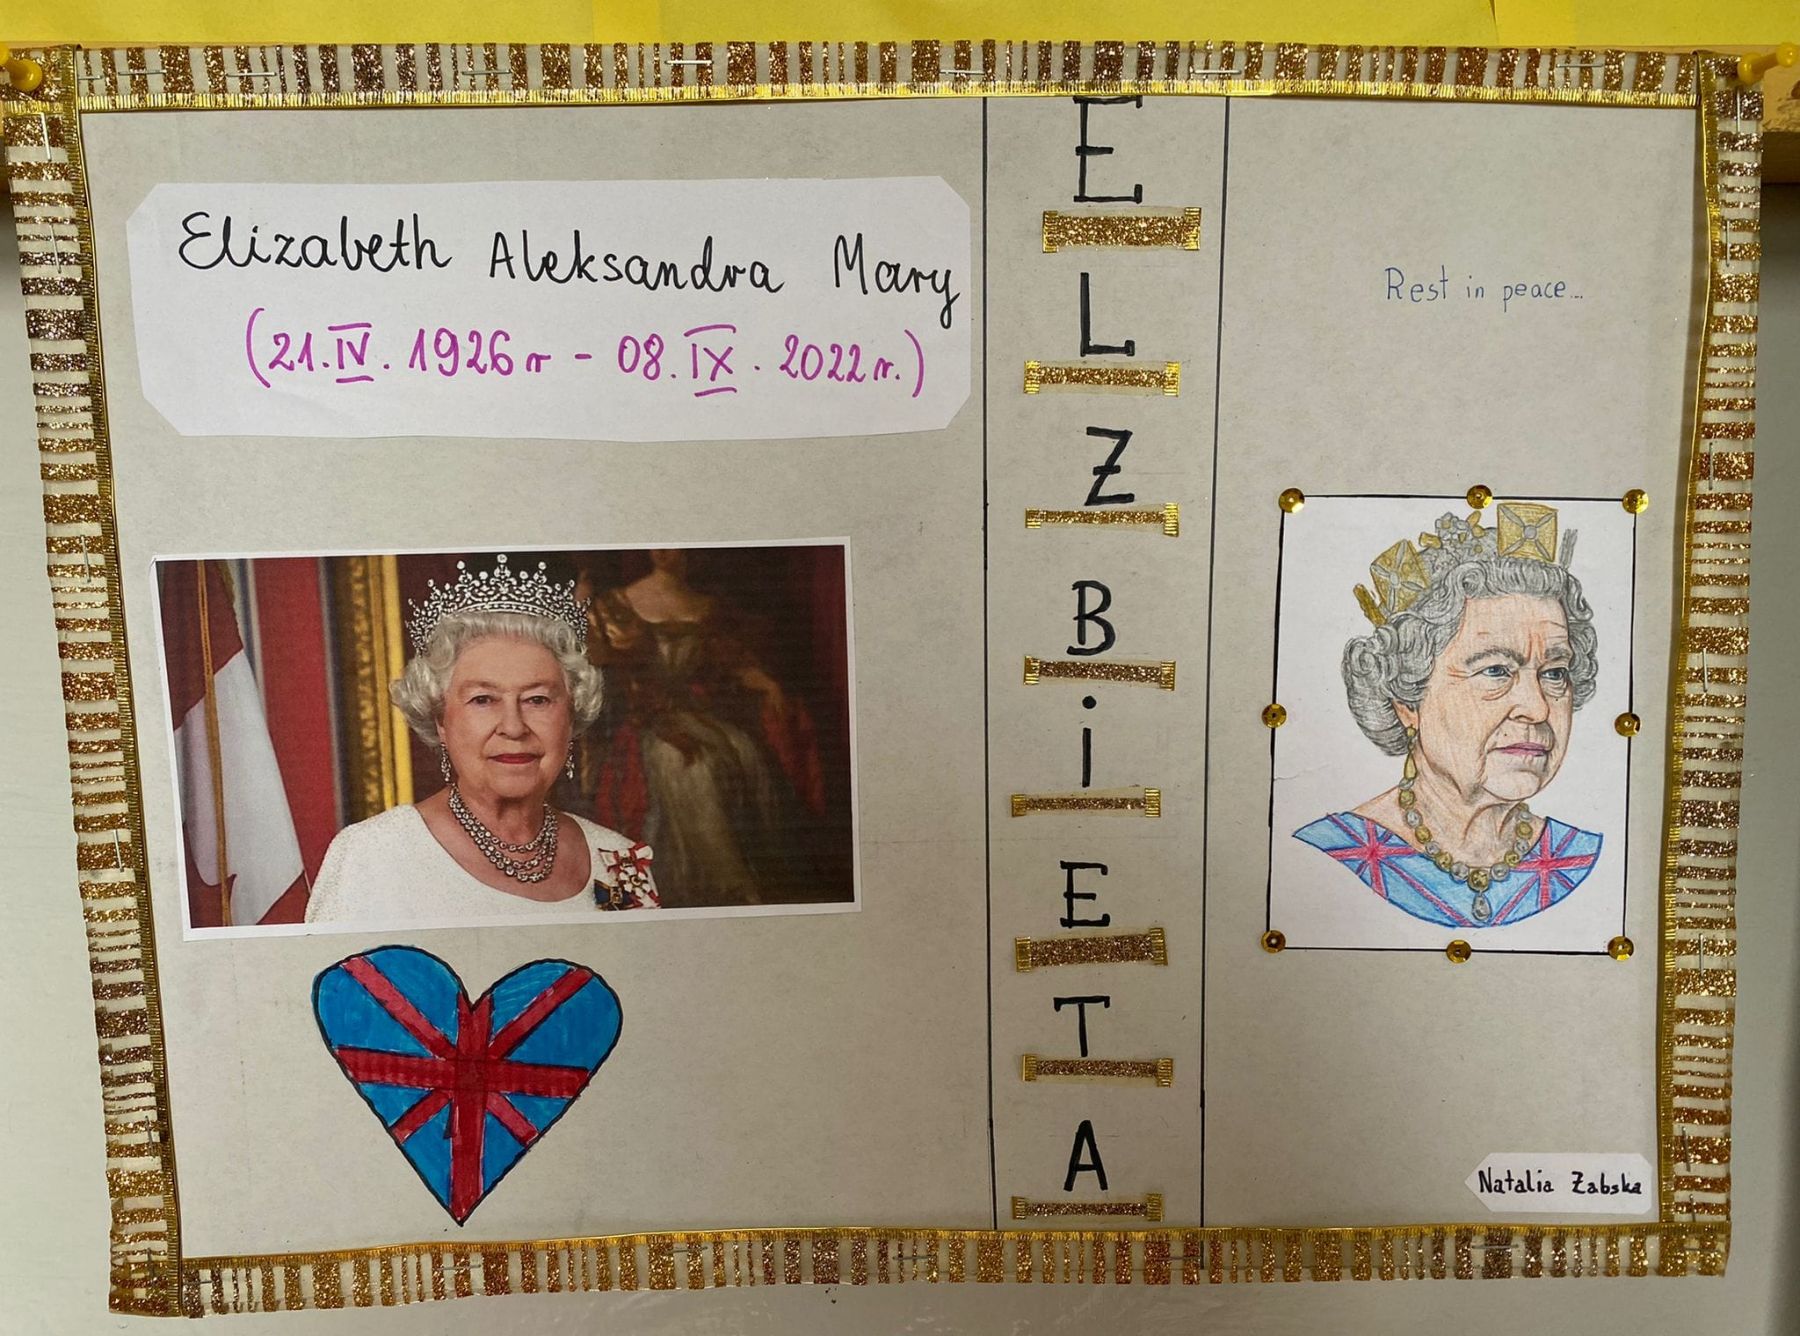 Elizabeth Aleksandra Mary
(21.IV.1926r - 08.IX.2022r.)
ELZBiETA
Rest in peace...
Natalia Żabska